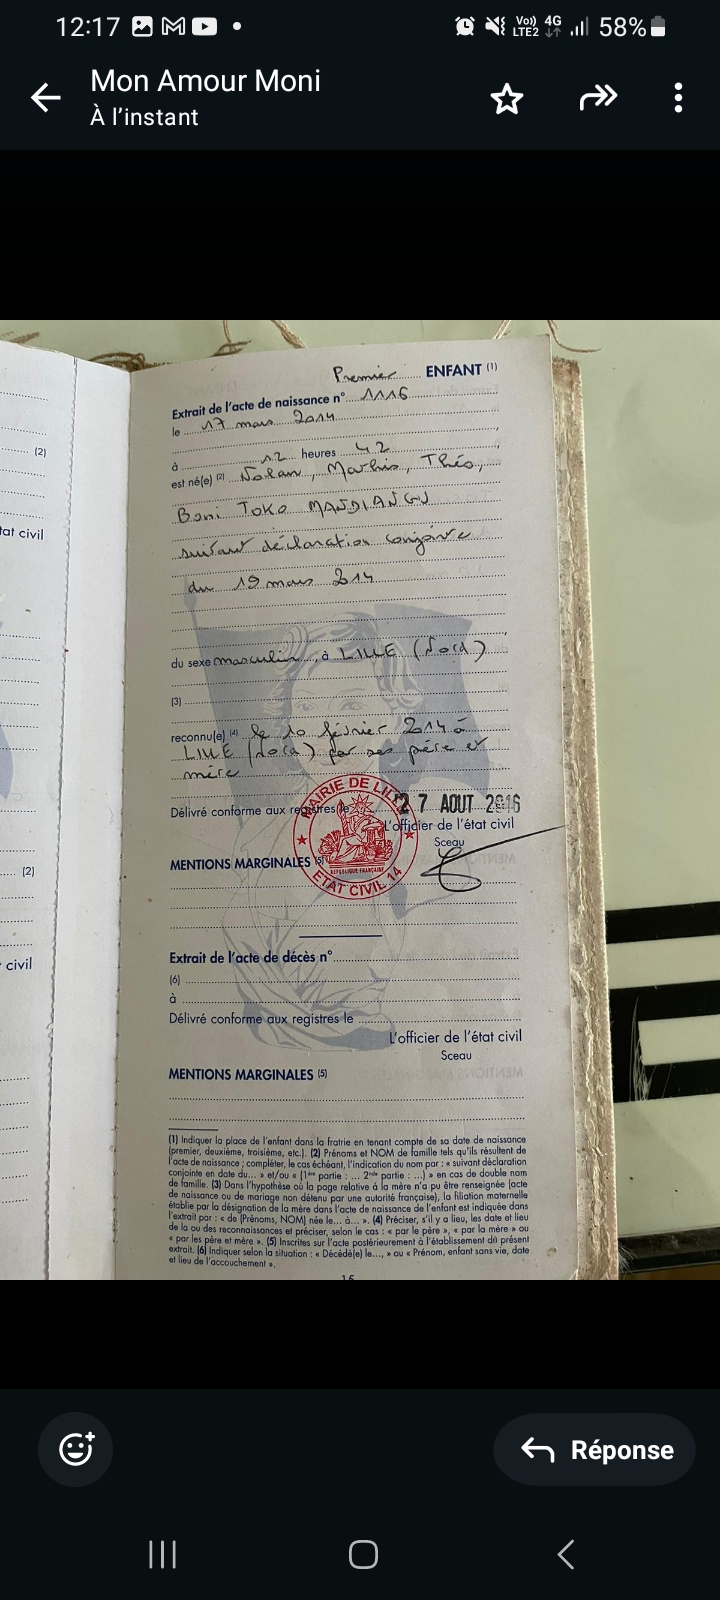 12:17
Vo)) 4G
LTE2
58%
Mon Amour Moni
À l'instant
Premier ENFANT (1)
Extrait de l'acte de naissance n° 1116
le 17 mars 2014
à 12 heures 42
est né(e) (2) Nolan, Mathis, Théo,
Boni Toko MANDIANGU
suivant déclaration conjointe
du 19 mars 2014
du sexe masculin, à LILLE (Nord)
(3)
reconnu(e) (4) le 10 février 2014 à
LILLE (Nord) par ses père et
mère
Délivré conforme aux registres le 27 AOUT 2016
L'officier de l'état civil
Sceau
MAIRIE DE LILLE
RÉPUBLIQUE FRANÇAISE
ETAT CIVIL 14
MENTIONS MARGINALES (5)
Extrait de l'acte de décès n°
(6)
à
Délivré conforme aux registres le
L'officier de l'état civil
Sceau
MENTIONS MARGINALES (5)
(1) Indiquer la place de l'enfant dans la fratrie en tenant compte de sa date de naissance
(premier, deuxième, troisième, etc.). (2) Prénoms et NOM de famille tels qu'ils résultent de
l'acte de naissance ; compléter, le cas échéant, l'indication du nom par : « suivant déclaration
conjointe en date du... » et/ou « (1ère partie : ... 2nde partie : ...) » en cas de double nom
de famille. (3) Dans l'hypothèse où la page relative à la mère n'a pu être renseignée (acte
de naissance ou de mariage non détenu par une autorité française), la filiation maternelle
établie par la désignation de la mère dans l'acte de naissance de l'enfant est indiquée dans
l'extrait par : « de (Prénoms, NOM) née le... à... ». (4) Préciser, s'il y a lieu, les date et lieu
de la ou des reconnaissances et préciser, selon le cas : « par le père », « par la mère » ou
« par les père et mère ». (5) Inscrites sur l'acte postérieurement à l'établissement du présent
extrait. (6) Indiquer selon la situation : « Décédé(e) le..., » ou « Prénom, enfant sans vie, date
et lieu de l'accouchement ».
15
(2)
tat civil
(2)
civil
Réponse